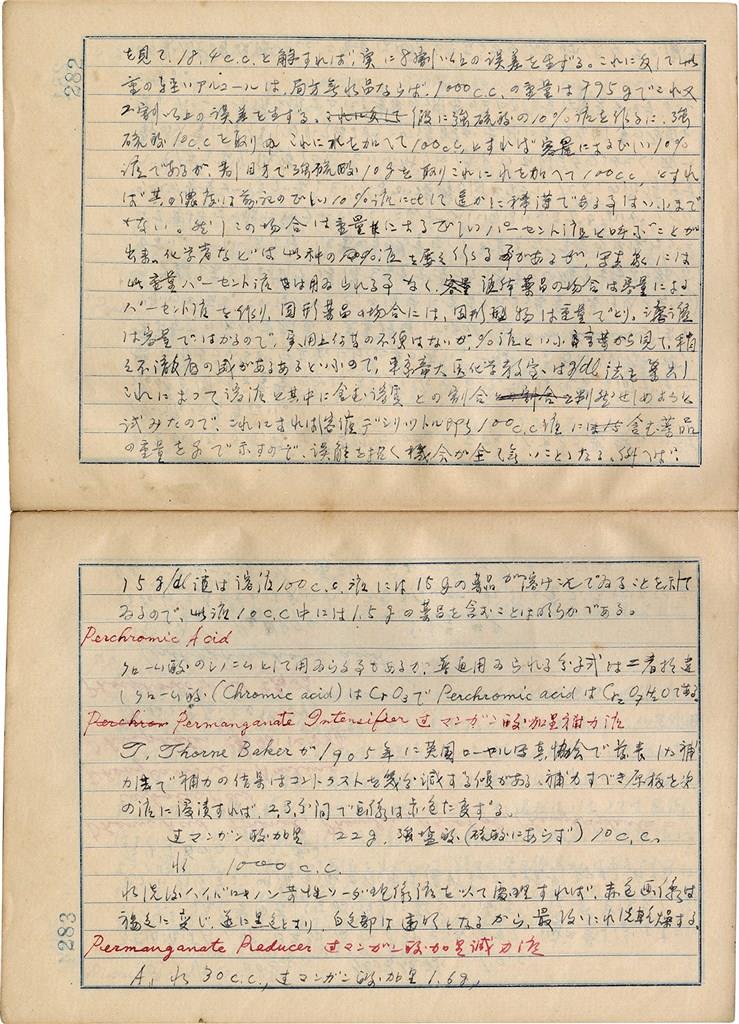 282
を見て、18.4c.c.と解すれば、実に8割以上の誤差を生ずる。これに反して比
重の軽いアルコールは、局方無水品ならば、1000c.c.の重量は795gでこれ又
2割以上の誤差を生ずる。仮に強硫酸の10%液を作るに、強
硫酸10c.c.を取り これに水を加へて100c.c.とすれば容量による正しい10%
液であるが、若し目方で強硫酸10gを取りこれに水を加へて100c.c.とすれ
ば其の濃度は前記の正しい10%液に比して遥かに稀薄である事はいふまで
もない。然しこの場合は重量による正しいパーセント液と呼ぶことが
出来、化学者などは此種の%液を屡々作る事があるが、写真家には
此重量パーセント液は用ゐられる事なく、液体薬品の場合は容量による
パーセント液を作り、固形薬品の場合には、固形物は重量でとり、溶液
は容量ではかるので、実用上何等の不便はないが、%液といふ字書から見て、
不徹底の感があるといふので、東京帝大医化学教室はg/dl法を案出し
これによつて溶液と其中に含む溶質との割合を判然せしめようと
試みたので、これによれば溶液デシリットル即ち100c.c.液に含む薬品
の重量をgで示すので、誤解を招く機会が全く無いことになる、例へば
15g/dl液は溶液100c.c.液には15gの薬品が溶けこんでゐることを示して
ゐるので、此液10c.c.中には1.5gの薬品を含むことは明らかである。
Perchromic Acid
クローム酸のシノニムとして用ゐらるゝ事もあるが、普通用ゐられる分子式は二者相違
しクローム酸(Chromic acid)はCrO3でPerchromic acidはCr2O7H2Oである
Permanganate Intensifier 過マンガン酸加里補力液
T. Thorne Bakerが1905年に英国ローヤル写真協会で発表した補
力法で補力の結果はコントラストを幾分減ずる傾がある、補力すべき原板を次
の液に浸漬すれば、2,3分間で画像は赤色に変ずる。
過マンガン酸加里 22g. 強塩酸(硫酸にあらず) 10c.c.
水 1000c.c.
水洗後ハイドロキノン苛性ソーダ現像液を以て処理すれば、赤色画像は
褐色に変じ、遂に黒色となり、白色部は透明となるから、最後に水洗乾燥する。
Permanganate Reducer 過マンガン酸加里減力液
A. 水 30c.c., 過マンガン酸加里 1.6g,
283